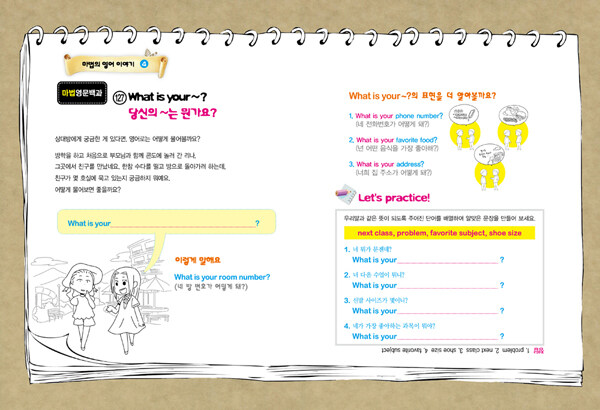 마법의 영어 이야기 4
마법영문백과
127 What is your ~?
당신의 ~는 뭔가요?
상대방에게 궁금한 게 있다면, 영어로는 어떻게 물어볼까요?
방학을 하고 처음으로 부모님과 함께 콘도에 놀러 간 리나,
그곳에서 친구를 만났네요. 한참 수다를 떨고 방으로 돌아가려 하는데,
친구가 몇 호실에 묵고 있는지 궁금하지 뭐예요.
어떻게 물어보면 좋을까요?
What is your ?
이렇게 말해요
What is your room number?
(네 방 번호가 어떻게 돼?)
What is your~?의 표현을 더 알아볼까요?
1. What is your phone number?
(네 전화번호가 어떻게 돼?)
2. What is your favorite food?
(넌 어떤 음식을 가장 좋아해?)
3. What is your address?
(너희 집 주소가 어떻게 돼?)
Let's practice!
우리말과 같은 뜻이 되도록 주어진 단어를 배열하여 알맞은 문장을 만들어 보세요.
next class, problem, favorite subject, shoe size
1. 네 뭐가 문제니?
What is your ?
2. 너 다음 수업이 뭐니?
What is your ?
3. 신발 사이즈가 몇이니?
What is your ?
4. 네가 가장 좋아하는 과목이 뭐야?
What is your ?
정답 1. problem 2. next class 3. shoe size 4. favorite subject